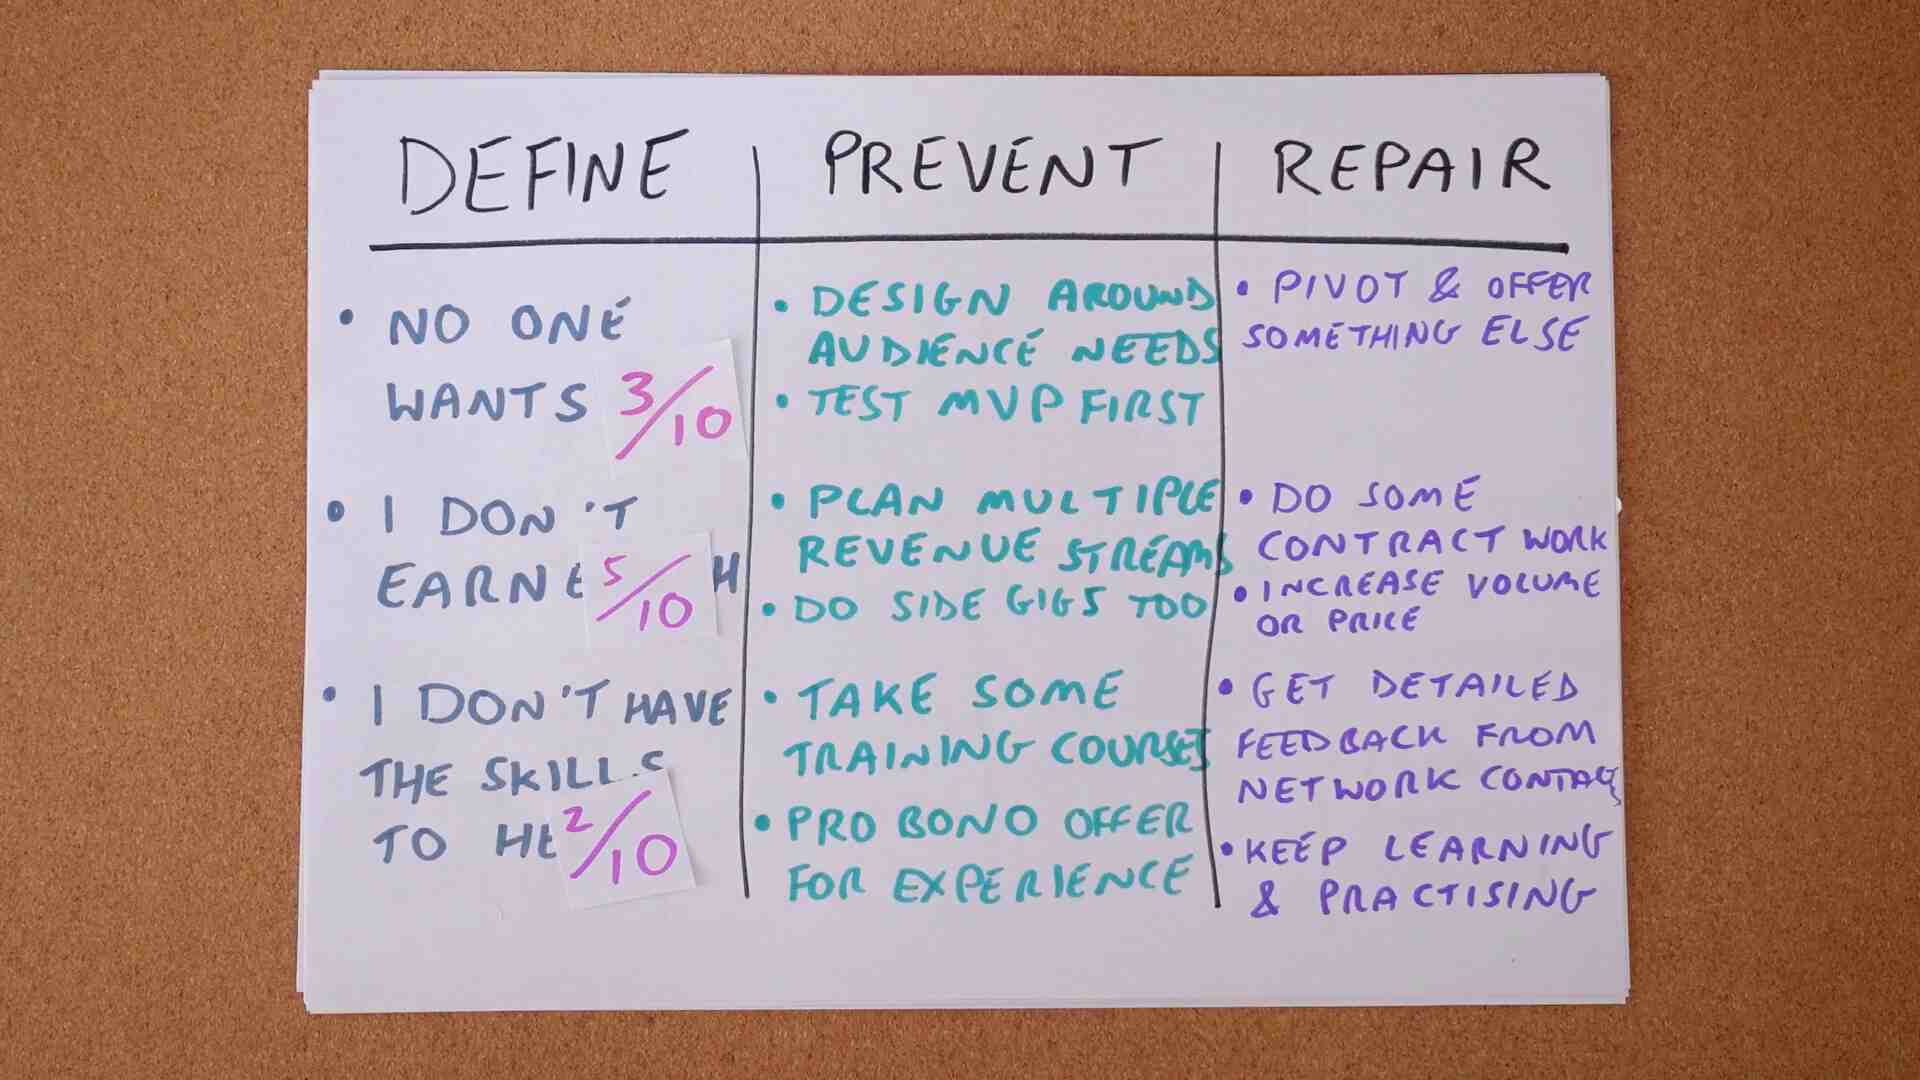 DEFINE
PREVENT
REPAIR
• NO ONE
WANTS
3/10
• DESIGN AROUND
AUDIENCE NEEDS
• TEST MVP FIRST
• PIVOT & OFFER
SOMETHING ELSE
• I DON'T
EARN
5/10
• PLAN MULTIPLE
REVENUE STREAMS
• DO SIDE GIGS TOO
• DO SOME
CONTRACT WORK
• INCREASE VOLUME
OR PRICE
• I DON'T HAVE
THE SKILLS
TO
2/10
• TAKE SOME
TRAINING COURSES
• PRO BONO OFFER
FOR EXPERIENCE
• GET DETAILED
FEEDBACK FROM
NETWORK CONTACTS
• KEEP LEARNING
& PRACTISING